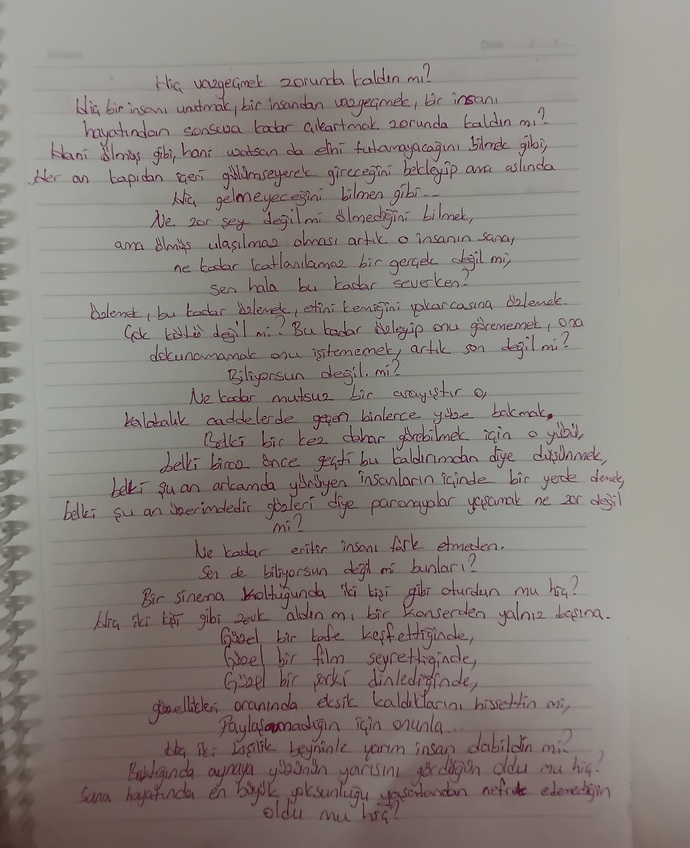 Date
Hiç vazgeçmek zorunda kaldın mı?
Hiç bir insanı unutmak, bir insandan vazgeçmek, bir insanı
hayatından sonsuza kadar çıkartmak zorunda kaldın mı?
Hani ölmüş gibi, hani uzatsan da elini tutamayacağını bilmek gibi,
Her an kapıdan içeri gülümseyerek gireceğini bekleyip ama aslında
Hiç gelmeyeceğini bilmen gibi...
Ne zor şey değil mi ölmediğini bilmek,
ama ölmüş ulaşılmaz olması artık o insanın sana,
ne kadar katlanılamaz bir gerçek değil mi,
sen hala bu kadar severken?
Özlemek, bu kadar özlemek, etini kemiğini yakarcasına özlemek.
Çok kötü değil mi? Bu kadar özleyip onu görememek, ona
dokunamamak onu işitememek, artık son değil mi?
Biliyorsun değil mi?
Ne kadar mutsuz bir arayıştır o,
kalabalık caddelerde geçen binlerce yüze bakmak,
Belki bir kez dahar görebilmek için o yüzü,
belki biraz önce geçti bu kaldırımdan diye düşünmek,
belki şu an arkamda yürüyen insanların içinde bir yerde demek,
belki şu an üzerimdedir gözleri diye paranoyalar yaşamak ne zor değil
mi?
Ne kadar eritir insanı fark etmeden.
Sen de biliyorsun değil mi bunları?
Bir sinema koltuğunda iki kişi gibi oturdun mu hiç?
Hiç iki kişi gibi zevk aldın mı bir konserden yalnız başına.
Güzel bir kafe keşfettiğinde,
Güzel bir film seyrettiğinde,
Güzel bir şarkı dinlediğinde,
güzellikleri oranında eksik kaldıklarını hissettin mi,
Paylaşamadığın için onunla...
Hiç iki kişilik beyninle yarım insan olabildin mi?
Baktığında aynaya yüzünün yarısını gördüğün oldu mu hiç?
Sana hayatında en büyük yoksunluğu yaşatandan nefret edemediğin
oldu mu hiç?